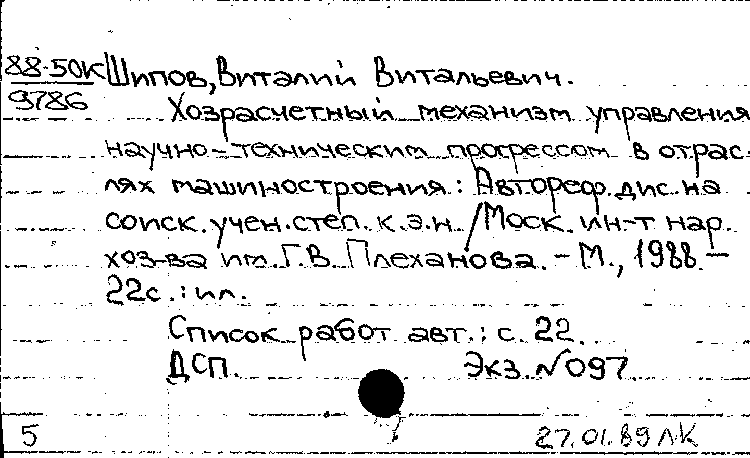 88-50К Шипов, Виталий Витальевич.
9786
Хозрасчетный механизм управления
научно-техническим прогрессом в отрас-
лях машиностроения: Автореф. дис. на
соиск. учен. степ. к.э.н. / Моск. ин-т нар.
хоз-ва им. Г.В. Плеханова. - М., 1988. -
22с.: ил.
Список работ авт.: с. 22.
ДСП. Экз. №097
5 27.01.89 ЛК